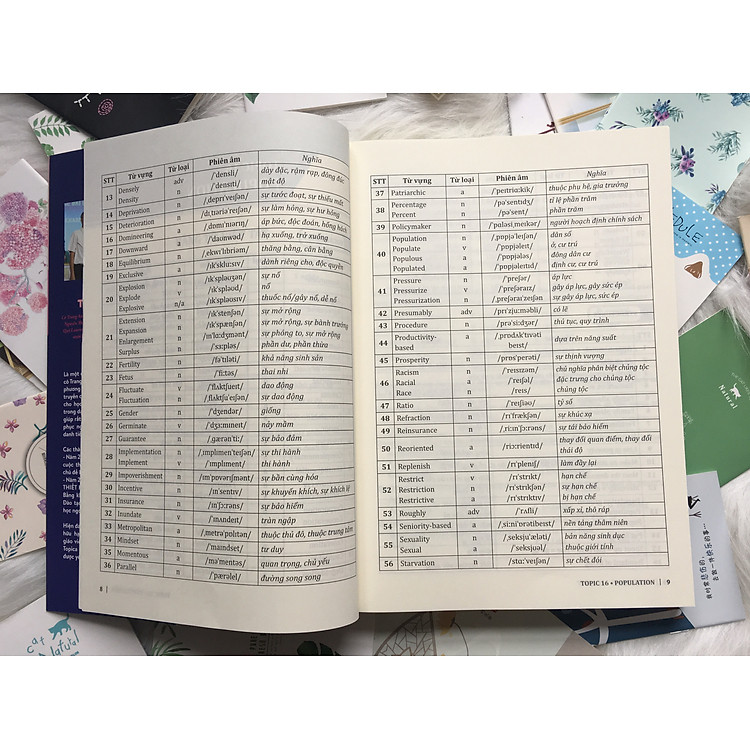 STT Từ vựng Từ loại Phiên âm Nghĩa
13 Densely adv /ˈdensli/ dày đặc, rậm rạp, đông đúc
Density n /ˈdensəti/ mật độ
14 Deprivation n /ˌdeprɪˈveɪʃən/ sự tước đoạt, sự thiếu mất
15 Deterioration n /dɪˌtɪəriəˈreɪʃən/ sự làm hỏng, sự hư hỏng
16 Domineering a /ˌdɒmɪˈnɪərɪŋ/ áp bức, độc đoán, hống hách
17 Downward a /ˈdaʊnwəd/ hạ xuống, trở xuống
18 Equilibrium n /ˌekwɪˈlɪbriəm/ thăng bằng, cân bằng
19 Exclusive a /ɪkˈskluːsɪv/ dành riêng cho, độc quyền
20 Explosion n /ɪkˈspləʊʒən/ sự nổ
Explode v /ɪkˈspləʊd/ nổ
Explosive n/a /ɪkˈspləʊsɪv/ thuốc nổ/gây nổ, dễ nổ
21 Extension n /ɪkˈstenʃən/ sự mở rộng
Expansion n /ɪkˈspænʃən/ sự mở rộng, sự bành trướng
Enlargement n /ɪnˈlɑːdʒmənt/ sự phóng to, sự mở rộng
Surplus n /ˈsɜːpləs/ phần dư, phần thừa
22 Fertility n /fəˈtɪləti/ khả năng sinh sản
23 Fetus n /ˈfiːtəs/ thai nhi
24 Fluctuate v /ˈflʌktʃueɪt/ dao động
Fluctuation n /ˌflʌktʃuˈeɪʃən/ sự dao động
25 Gender n /ˈdʒendər/ giống
26 Germinate v /ˈdʒɜːmɪneɪt/ nảy mầm
27 Guarantee n /ˌɡærənˈtiː/ sự bảo đảm
28 Implementation n /ˌɪmplɪmenˈteɪʃən/ sự thi hành
Implement v /ˈɪmplɪment/ thi hành
29 Impoverishment n /ɪmˈpɒvərɪʃmənt/ sự bần cùng hóa
30 Incentive n /ɪnˈsentɪv/ sự khuyến khích, sự khích lệ
31 Insurance n /ɪnˈʃɔːrəns/ sự bảo hiểm
32 Inundate v /ˈɪnʌndeɪt/ tràn ngập
33 Metropolitan a /ˌmetrəˈpɒlɪtən/ thuộc thủ đô, thuộc trung tâm
34 Mindset n /ˈmaɪndset/ tư duy
35 Momentous a /məˈmentəs/ quan trọng, chủ yếu
36 Parallel n /ˈpærəlel/ đường song song
8
STT Từ vựng Từ loại Phiên âm Nghĩa
37 Patriarchic a /ˈpeɪtriɑːkik/ thuộc phụ hệ, gia trưởng
38 Percentage n /pəˈsentɪdʒ/ tỉ lệ phần trăm
Percent n /pəˈsent/ phần trăm
39 Policymaker n /ˈpɒləsiˌmeɪkər/ người hoạch định chính sách
40 Population n /ˌpɒpjəˈleɪʃən/ dân số
Populate v /ˈpɒpjəleɪt/ ở, cư trú
Populous a /ˈpɒpjələs/ đông dân cư
Populated a /ˈpɒpjəleɪtɪd/ định cư, cư trú
41 Pressure n /ˈpreʃər/ áp lực
Pressurize v /ˈpreʃəraɪz/ gây áp lực, gây sức ép
Pressurization n /ˌpreʃəraɪˈzeɪʃən/ sự gây áp lực, sức ép
42 Presumably adv /prɪˈzjuːməbli/ có lẽ
43 Procedure n /prəˈsiːdʒər/ thủ tục, quy trình
44 Productivity-based a /ˌprɒdʌkˈtɪvəti beɪst/ dựa trên năng suất
45 Prosperity n /prɒsˈperəti/ sự thịnh vượng
46 Racism n /ˈreɪsɪzəm/ chủ nghĩa phân biệt chủng tộc
Racial a /ˈreɪʃəl/ đặc trưng cho chủng tộc
Race n /reɪs/ chủng tộc
47 Ratio n /ˈreɪʃiəʊ/ tỷ số
48 Refraction n /rɪˈfrækʃən/ sự khúc xạ
49 Reinsurance n /ˌriːɪnˈʃɔːrəns/ sự tái bảo hiểm
50 Reoriented a /riːˈɔːrientɪd/ thay đổi quan điểm, thay đổi thái độ
51 Replenish v /rɪˈplenɪʃ/ làm đầy lại
52 Restrict v /rɪˈstrɪkt/ hạn chế
Restriction n /rɪˈstrɪkʃən/ sự hạn chế
Restrictive a /rɪˈstrɪktɪv/ bị hạn chế
53 Roughly adv /ˈrʌfli/ xấp xỉ, thô ráp
54 Seniority-based a /ˌsiːniˈɒrətibeɪst/ nền tảng thâm niên
55 Sexuality n /ˌsekʃuˈæləti/ bản năng sinh dục
Sexual a /ˈsekʃuəl/ thuộc giới tính
56 Starvation n /stɑːˈveɪʃən/ sự chết đói
TOPIC 16 • POPULATION | 9
Natural
cat
Natural